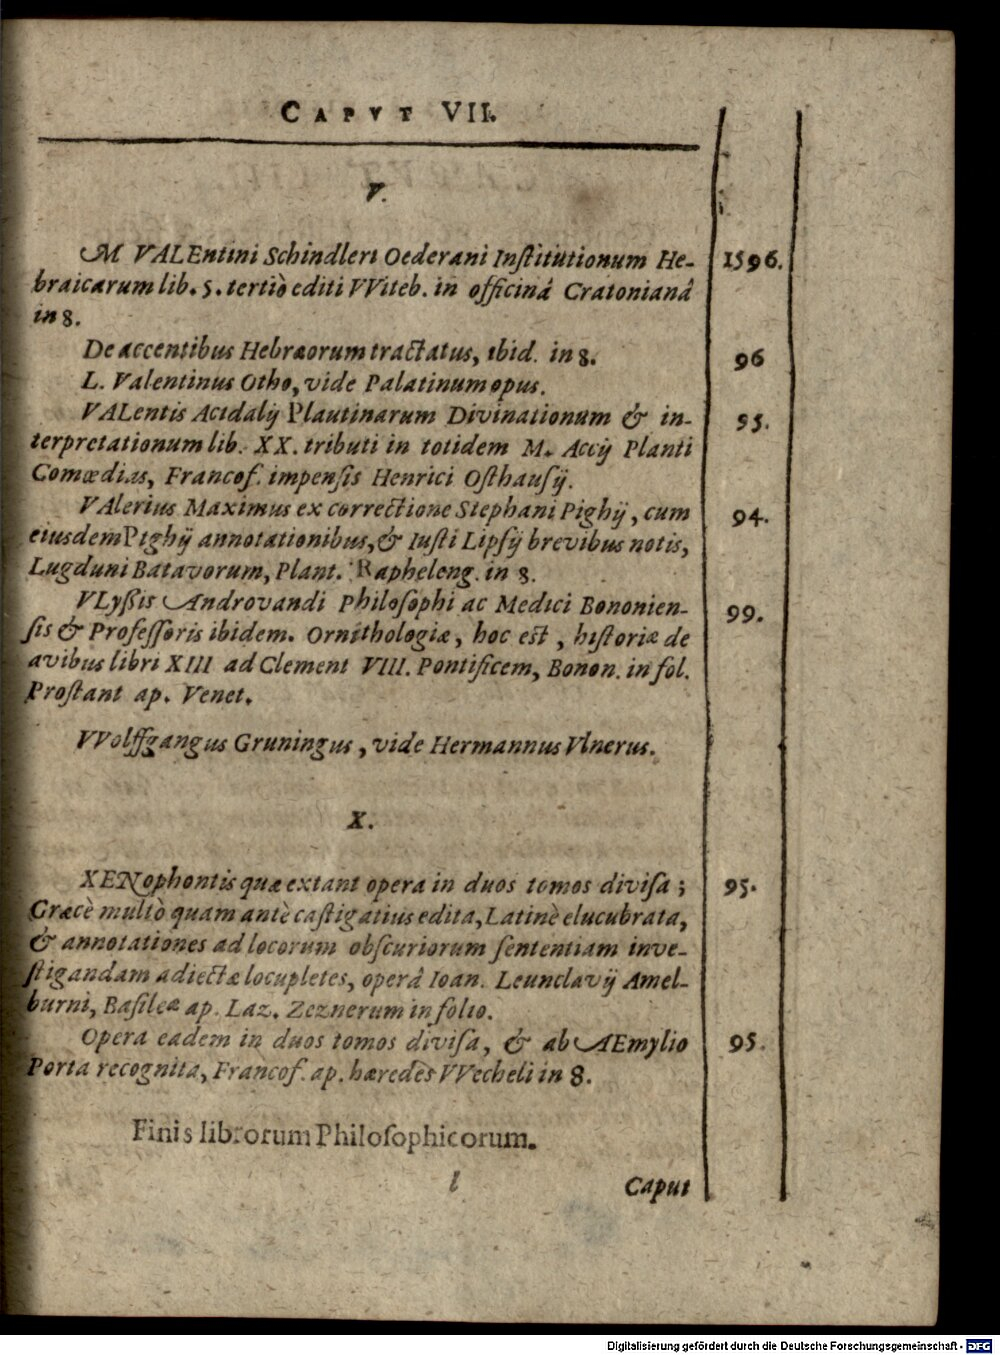 CAPVT VII.
V.
M VALEntini Schindleri Oederani Inſtitutionum He- 1596.
braicarum lib. 5. tertiò editi VViteb. in officinâ Cratonianâ
in 8.
De accentibus Hebræorum tractatus, ibid. in 8. 96
L. Valentinus Otho, vide Palatinum opus.
VALentis Acidalij Plautinarum Divinationum & in- 95.
terpretationum lib. XX. tributi in totidem M. Accij Planti
Comœdias, Francof. impenſis Henrici Oſthauſij.
VAlerius Maximus ex correctione Stephani Pighij, cum 94.
eiusdem Pighij annotationibus, & Iuſti Lipſij brevibus notis,
Lugduni Batavorum, Plant. Rapheleng. in 8.
VLyßis Androvandi Philoſophi ac Medici Bononien- 99.
ſis & Profeſſoris ibidem. Ornithologiæ, hoc eſt, hiſtoriæ de
avibus libri XIII ad Clement VIII. Pontificem, Bonon. in fol.
Proſtant ap. Venet.
VVolffgangus Gruningus, vide Hermannus Vlnerus.
X.
XENophontis quæ extant opera in duos tomos diviſa; 95.
Græcè multò quam antè caſtigatius edita, Latinè elucubrata,
& annotationes ad locorum obſcuriorum ſententiam inve-
ſtigandam adiectæ locupletes, operâ Ioan. Leunclavij Amel-
burni, Baſileæ ap. Laz. Zeznerum in folio.
Opera eadem in duos tomos diviſa, & ab AEmylio 95.
Porta recognita, Francof. ap. hæredes VVecheli in 8.
Finis librorum Philoſophicorum.
l Caput
Digitalisierung gefördert durch die Deutsche Forschungsgemeinschaft - DFG